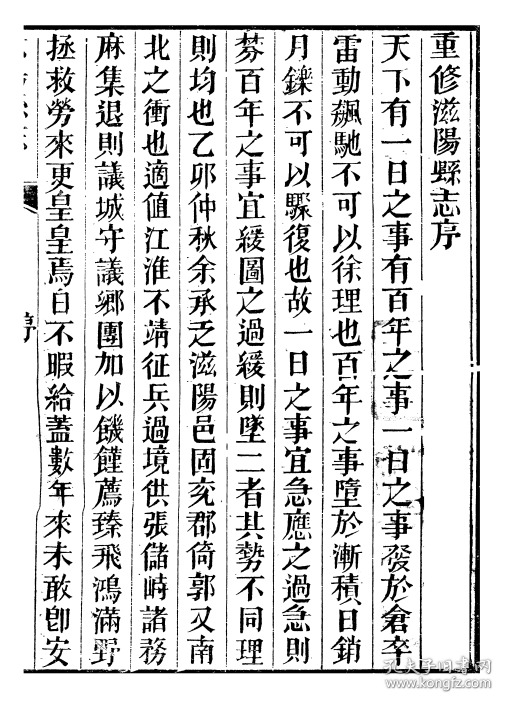 重修滋陽縣志序
天下有一日之事有百年之事一日之事發於倉卒
雷動飆馳不可以徐理也百年之事墮於漸積日銷
月鑠不可以驟復也故一日之事宜急應之過急則
棼百年之事宜緩圖之過緩則墜二者其勢不同理
則均也乙卯仲秋余承乏滋陽邑固兗郡倚郭又南
北之衝也適值江淮不靖征兵過境供張儲峙諸務
麻集退則議城守議鄉團加以饑饉薦臻飛鴻滿野
拯救勞來更皇皇焉日不暇給蓋數年來未敢卽安
序
孔夫子旧书网
www.kongfz.com